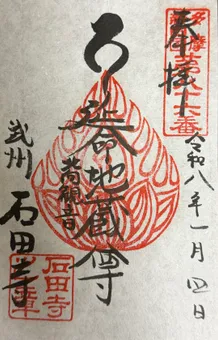 奉拝
多摩
第八十番
令和八年一月四日
延命地蔵尊
武州
石田寺
石田寺